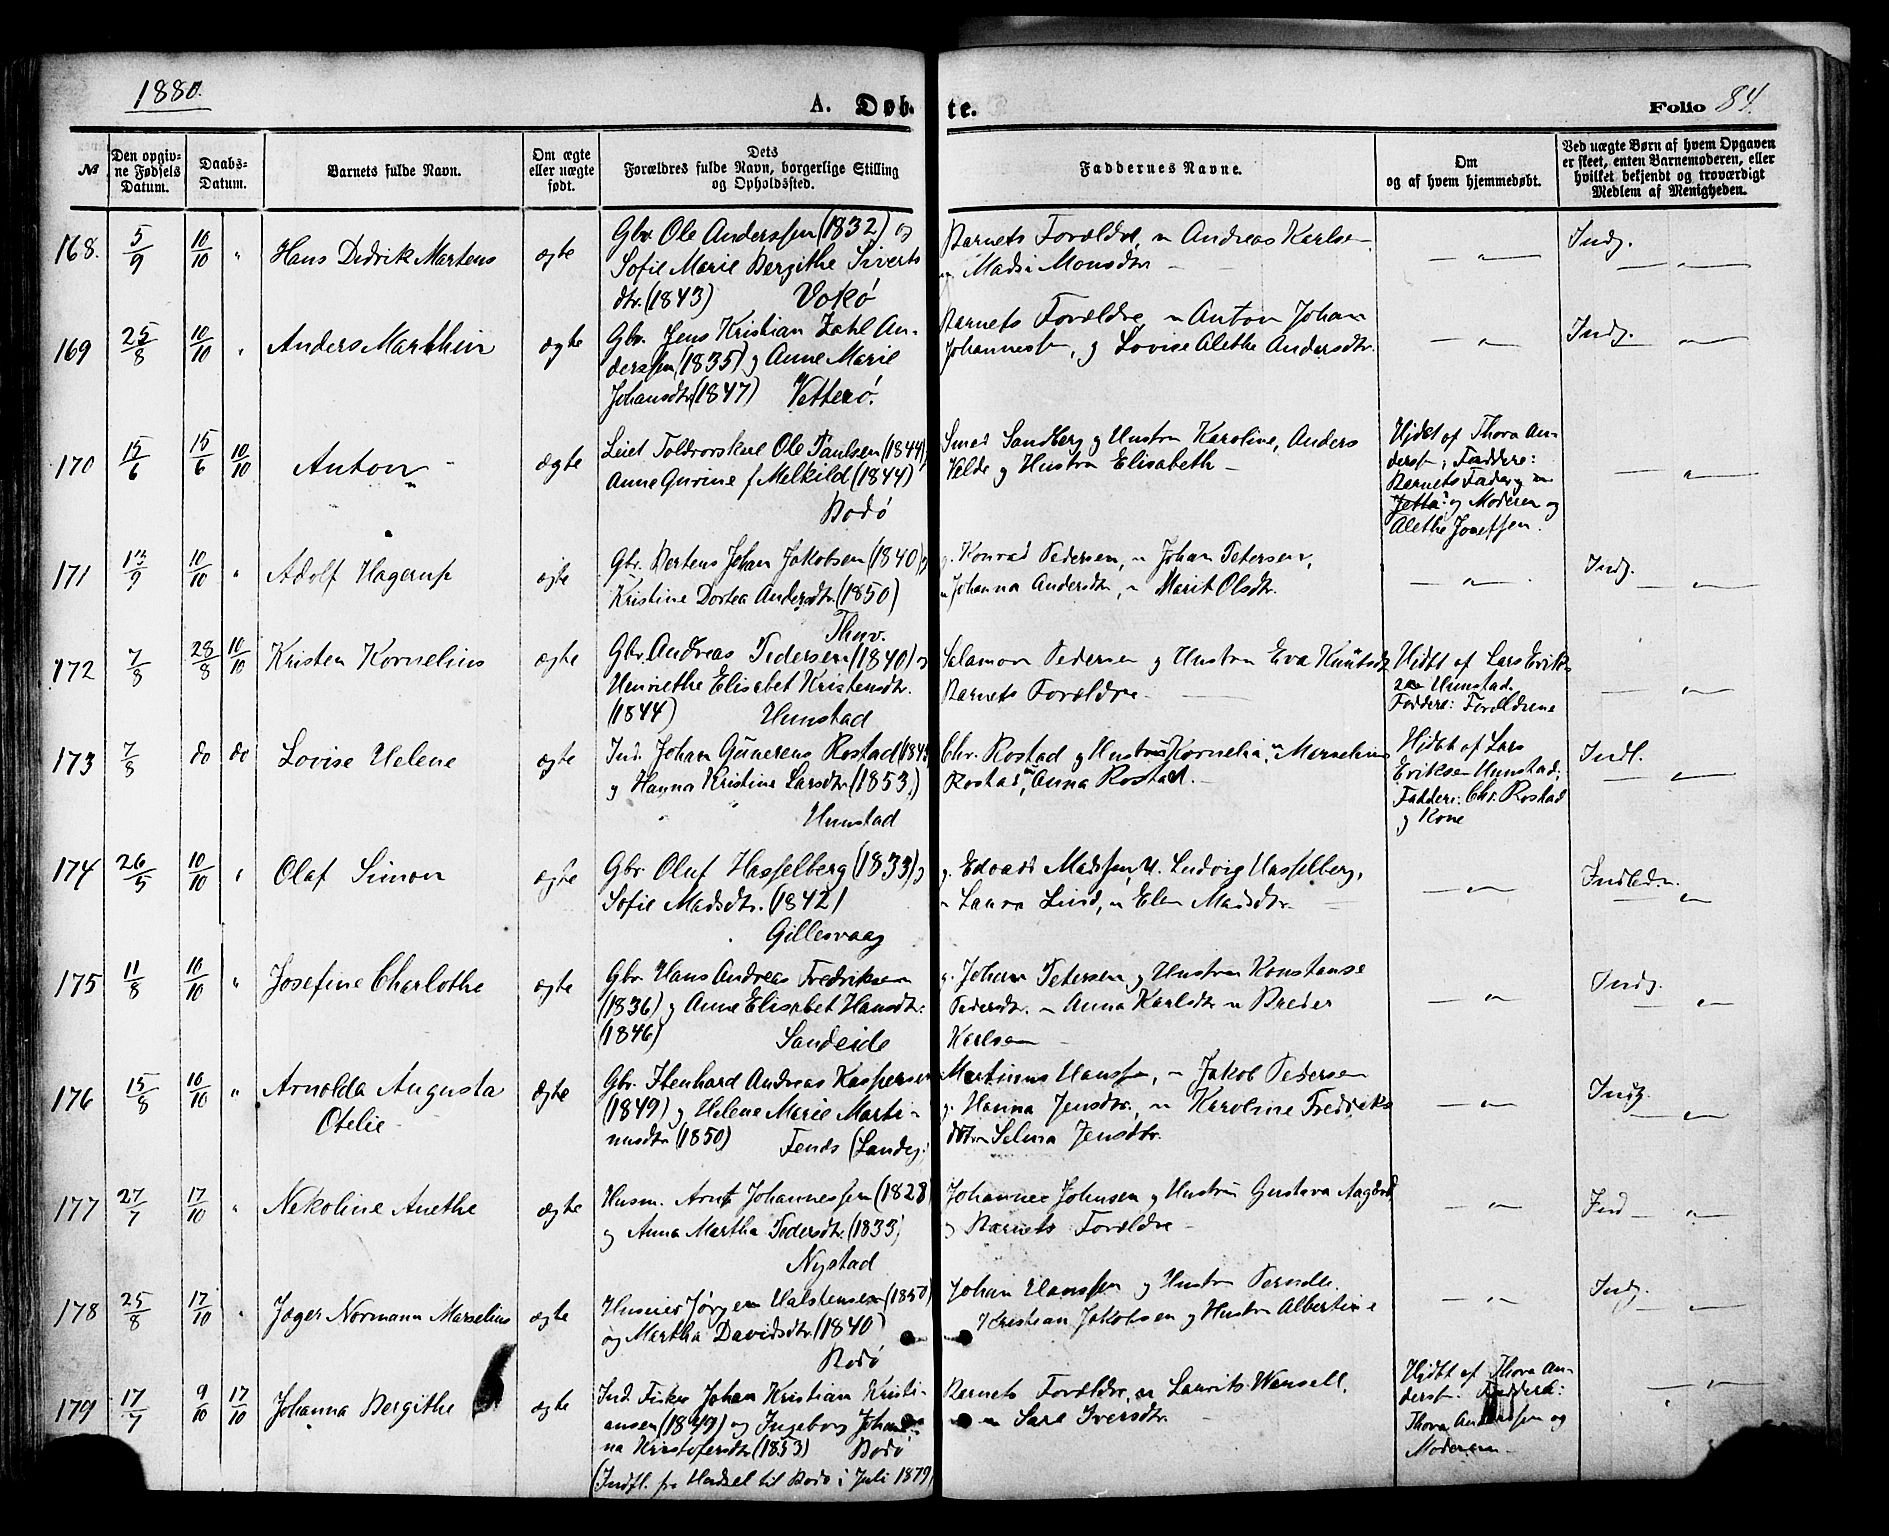 1880.
A. Døb- te.
Folio 84.
№
Den opgiv-
ne Fødsels
Datum.
Daabs-
Datum.
Barnets fulde Navn.
Om ægte
eller uægte
født.
Dets
Forældres fulde Navn, borgerlige Stilling
og Opholdssted.
Faddernes Navne.
Om
og af hvem hjemmedøbt.
Ved uægte Børn af hvem Opgaven
er skeet, enten Barnemoderen, eller
hvilket bekjendt og troværdigt
Medlem af Menigheden.
168. 5/9 10/10 " Hans Didrik Martens ægte
Gbr. Ole Anderssen (1832) og
Sofie Marie Bergithe Siverts
dtr. (1843) Vokø
Barnets Forældre, " Andreas Karlsen
og Madsi Monsdtr
Indg.
169 25/8 10/10 " Anders Marthin ægte
Gbr. Jens Kristian Zahl An-
derssen (1835) og Anne Marie
Johansdtr (1847) Vetterø.
Barnets Forældre " Anton Johan
Johanness, og Lovise Alethe Andersdtr.
Indg.
170 15/6 15/6 10/10 Anton ægte
Leiet Toldrorskar Ole Paulsen (1844)
Anne Gurine f Melkild (1844)
Bodø
Smed Sandberg og Hustru Karoline, Anders
Velde og Hustru Elisabeth
Hjdbt af Thora An-
derss; Faddere:
Barnets Fader og
Jetta og Moderen og
Alethe Josefsen.
171 13/9 10/10 " Adolf Hagerup ægte
Gbr. Bertens Johan Jakobsen (1840) og
Kristine Dortea Andersdtr. (1850)
Thuv.
g. Konrad Pedersen, " Johan Petersen,
" Johanna Andersdtr, " Marit Olsdtr.
Indg.
172 7/8 28/8 10/10 Kristen Kornelius ægte
Gbr. Andreas Pedersen (1840) og
Henriethe Elisabet Kristensdtr.
(1844) Hunstad
Salamon Pedersen og Hustru Eva Knutsdtr
Barnets Forældre
Hjdbt af Lars Eriks
Hunstad.
Faddere: Forældrene
173 7/8 do do Lovise Helene ægte
Ind. Johan Gunerens Rostad (184
og Hanna Kristine Larsdtr. (1853.)
Hunstad
Chr. Rostad og Hustru Kornelia, " Marselius
Rostad, " Anna Rostad.
Hjdbt af Lars
Eriksen Hunstad;
Faddere: Chr. Rostad
og Kone
Indl.
174 26/5 10/10 " Olaf Simon ægte
Gbr. Oluf Hasselberg (1833) og
Sofie Madsdtr. (1842)
Gillesvaag
g. Edvard Madssen, U. Ludvig Hasselberg,
" Laura Lind, " Elen Madsdtr.
175 11/8 10/10 " Josefine Charlothe ægte
Gbr. Hans Andreas Fredriksen
(1836) og Anne Elisabet Hansdtr.
(1846) Sandeide
g. Johan Petersen og Hustru Konstanse
Pedersdtr. " Anna Karlsdtr " Breder
Karlsen
Indg.
176 15/8 10/10 " Arnolda Augusta
Otelie ægte
Gbr. Stenhard Andreas Kaspersen
(1849) og Helene Marie Marti-
nusdtr (1850) Fends (Landeg.)
Martinus Hanss, " Jakob Pedersen
g. Hanna Jensdtr., " Karoline Fredriks
dtr " Selma Jensdtr.
Indg.
177 27/7 17/10 " Nekoline Anethe ægte
Husm. Arnt Johannessen (1828)
og Anna Martha Pedersdtr. (1833)
Nystad
Johannes Johnsen og Hustru Gustava Aagard
og Barnets Forældre
Ind
178 25/8 17/10 " Jæger Normann Marselius ægte
Huseier Jørgen Halstensen (1850)
og Martha Davidsdtr. (1840)
Bodø
Johan Hanssen og Hustru Pernille.
Kristian Jakobsen og Hustru Albertine
Indg.
179 17/7 9/10 17/10 Johanna Bergithe ægte
Ind. Fisker Johan Kristian Kristi-
ansen (1849) og Ingeborg Johan-
na Kristofersdtr (1853) Bodø
(Indfl. fra Hadsel til Bodø i Juli 1879)
Barnets Forældre, " Laurits Wensell.
" Sare Iversdtr.
Hjdbt af Thora An-
derss. Faddere:
Thora Anderssen og
Moderen